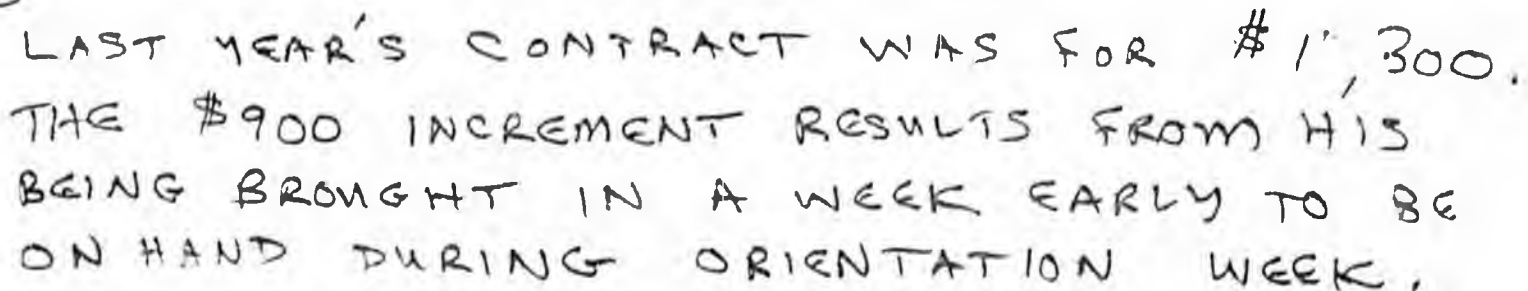 LAST YEAR'S CONTRACT WAS FOR $1,300.
THE $900 INCREMENT RESULTS FROM HIS
BEING BROUGHT IN A WEEK EARLY TO BE
ON HAND DURING ORIENTATION WEEK.